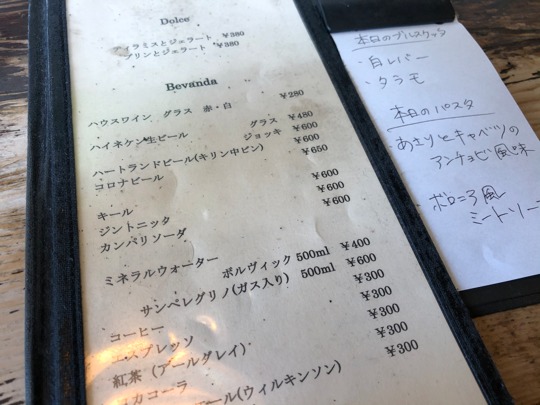 Dolce
ラミスとジェラート ¥380
プリンとジェラート ¥380
Bevanda
ハウスワイン グラス 赤・白 ¥280
ハイネケン生ビール グラス ¥480
ジョッキ ¥600
ハートランドビール(キリン中ビン) ¥600
コロナビール ¥650
キール ¥600
ジントニッタ ¥600
カンパリソーダ ¥600
ミネラルウォーター ボルヴィック 500ml ¥400
サンペレグリノ(ガス入り) 500ml ¥600
コーヒー ¥300
エスプレッソ ¥300
紅茶 (アールグレイ) ¥300
カコーラ ¥300
ール(ウィルキンソン)
本日のブルスケッタ
・白レバー
・タラモ
本日のパスタ
・あさりとキャベツの
アンチョビ風味
・ボロニア風
ミートソー